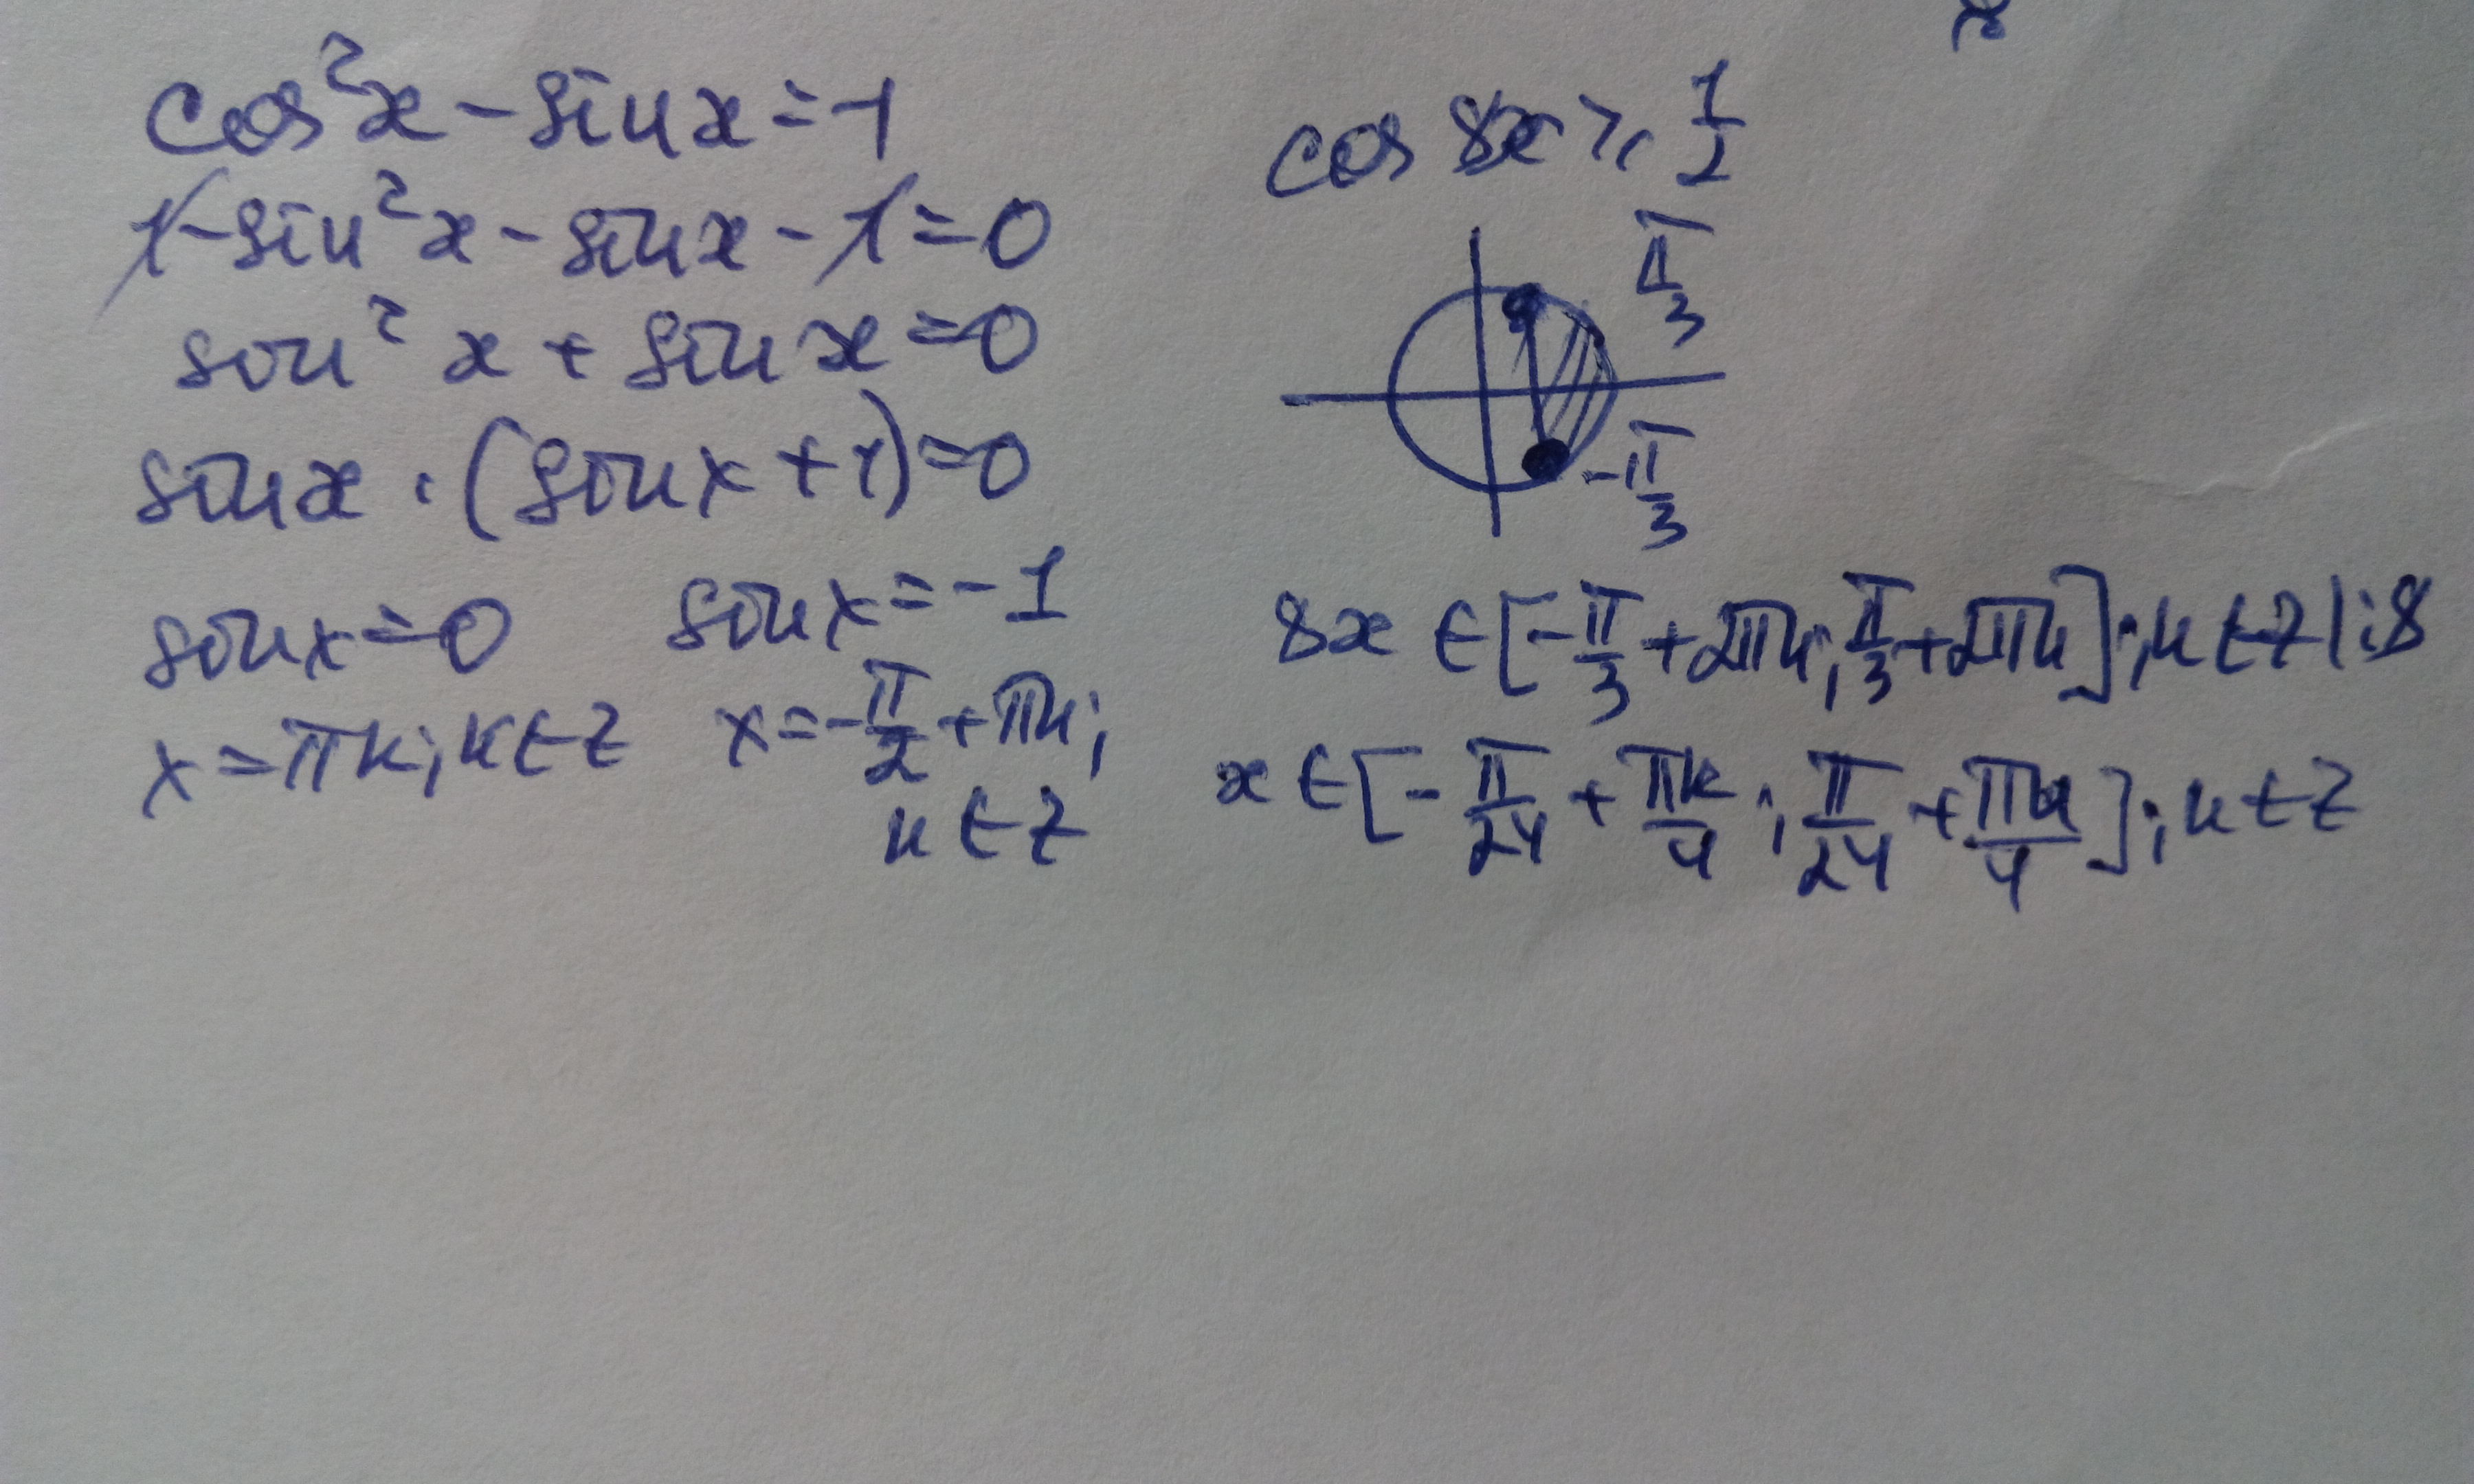 cos²x - sinx = -1
1 - sin²x - sinx - 1 = 0
sin² x + sin x = 0
sinx · (sinx + 1) = 0
sinx = 0 sinx = -1
x = πk; k ∈ Z x = -π/2 + πk;
k ∈ Z
cos 8x ⩾ 1/2
π/3
-π/3
8x ∈ [-π/3 + 2πk; π/3 + 2πk]; k ∈ Z | :8
x ∈ [-π/24 + πk/4; π/24 + πk/4]; k ∈ Z